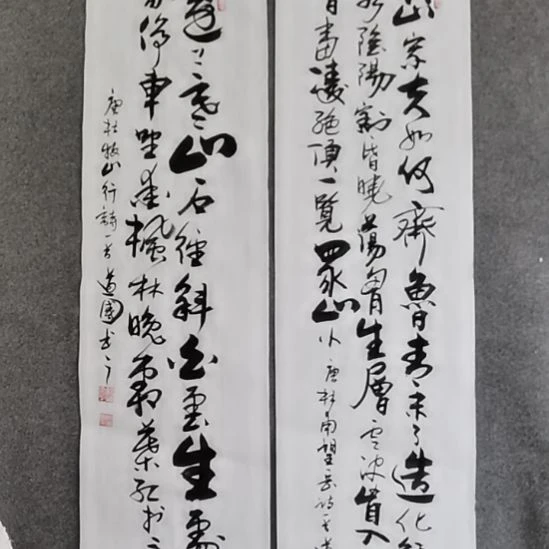 岱宗夫如何齊魯青未了造化
陰陽割昏曉蕩胸生層雲決眥入
會當凌絕頂一覽眾山小唐杜甫望岳詩一首
遠上寒山石徑斜白雲生處
家停車坐愛楓林晚霜葉紅於二
唐杜牧山行詩一首道國書